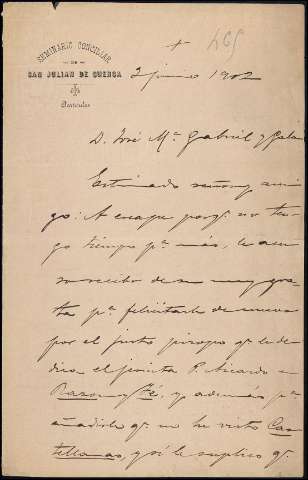 SEMINARIO CONCILIAR
DE
SAN JULIAN DE CUENCA
Particular
+
465
2 junio 1902
D. José Mª Gabriel y Galan
Estimado señor y ami-
go: A escape porq. no ten-
go tiempo pª más, le acu-
so recibo de su muy gra-
ta pª felicitarle de nuevo
por el justo piropo q. le de-
dica el jesuita P. Aicardo en
Razon y Fé, y además pª
añadirle q. no he visto Cas-
tellanas, y si le suplico q.